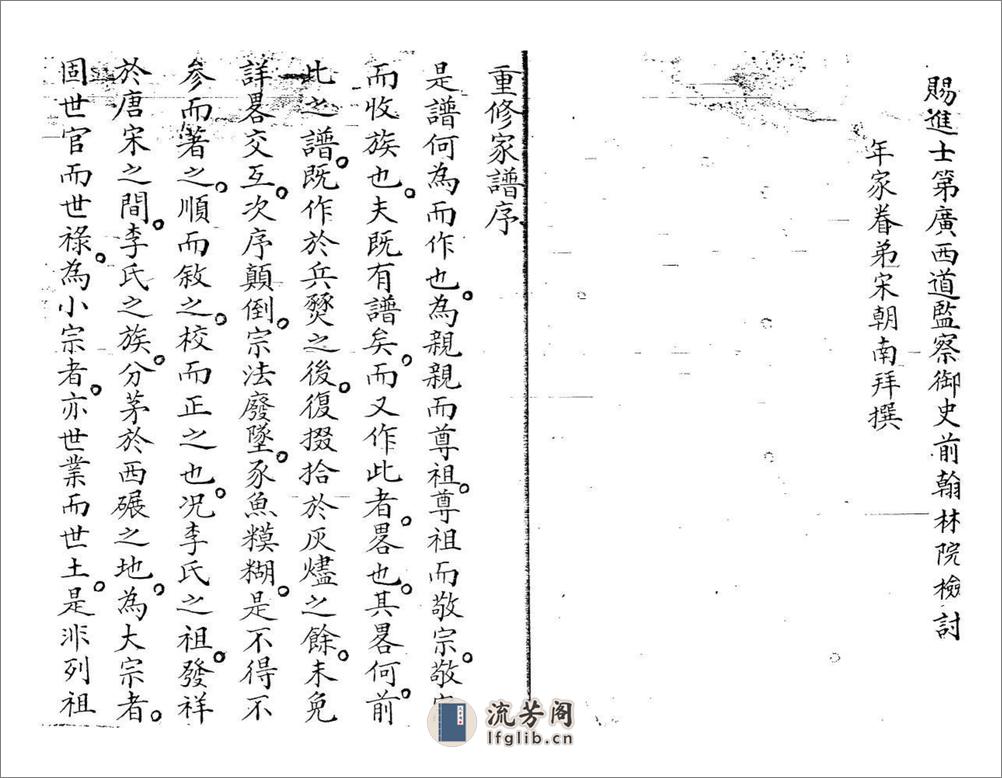 賜進士第廣西道監察御史前翰林院檢討
年家眷弟宋朝南拜撰
重修家譜序
是譜何為而作也。為親親而尊祖。尊祖而敬宗。敬宗
而收族也。夫既有譜矣。而又作此者。畧也。其畧何。前
此之譜。既作於兵燹之後。復掇拾於灰燼之餘。未免
詳畧交互。次序顛倒。宗法廢墜。豕魚糢糊。是不得不
參而著之。順而敘之。校而正之也。况李氏之祖。發祥
於唐宋之間。李氏之族。分茅於西碾之地。為大宗者。
固世官而世祿。為小宗者。亦世業而世土。是非列祖
流芳阁
lfglib.cn